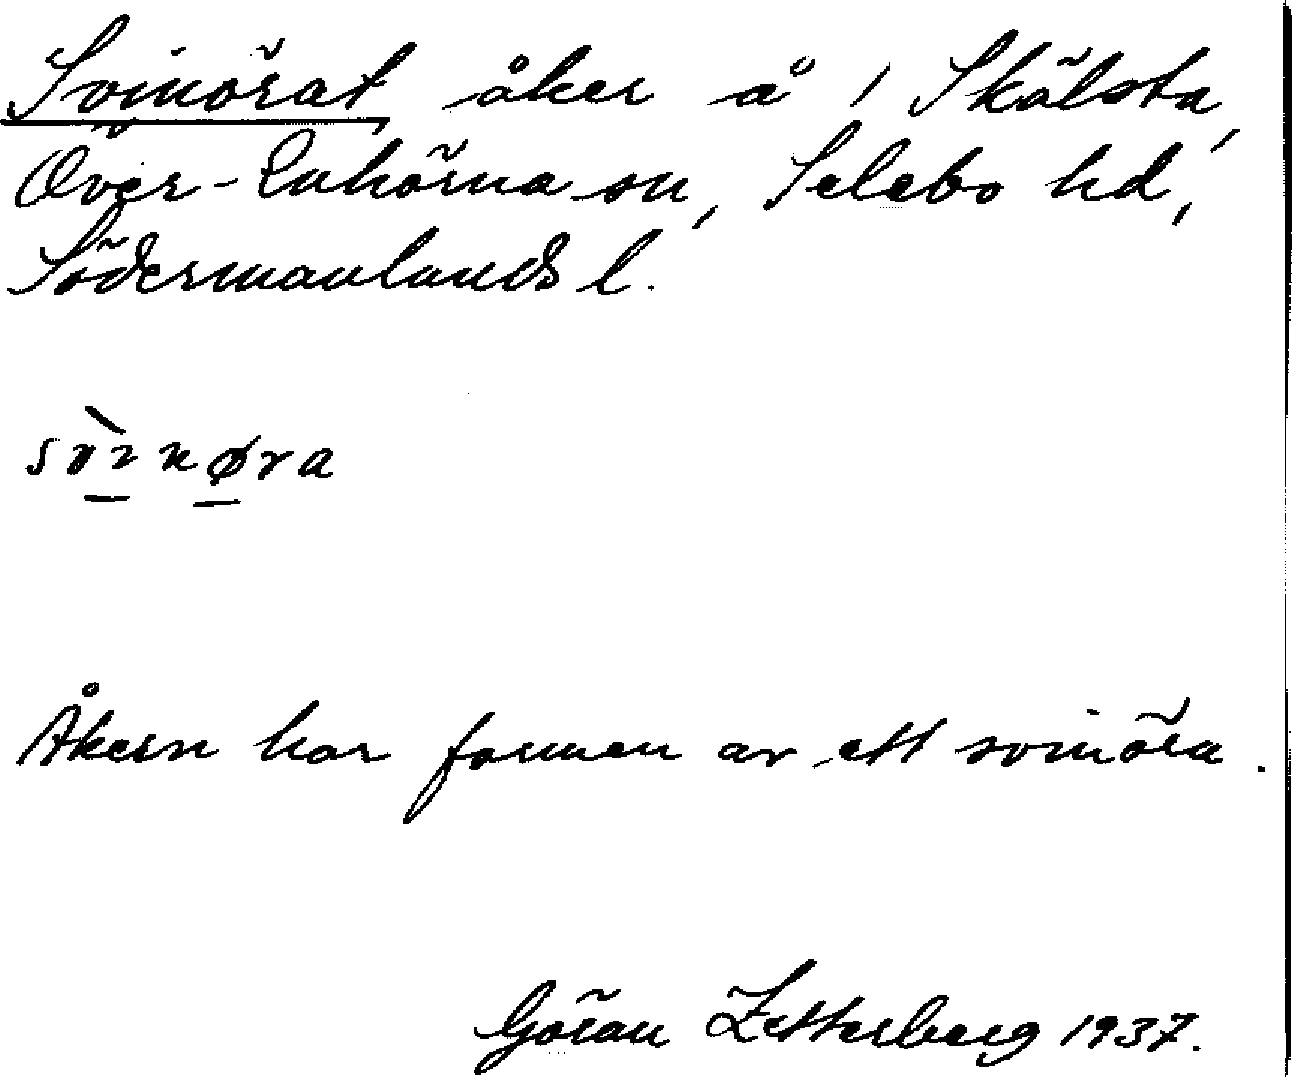 Svinörat åker å 1 Skälsta,
Över-Enhörna sn, Selebo hd,
Södermanlands l.
svinøra
Åkern har formen av ett svinöra.
Göran Zetterberg 1937.